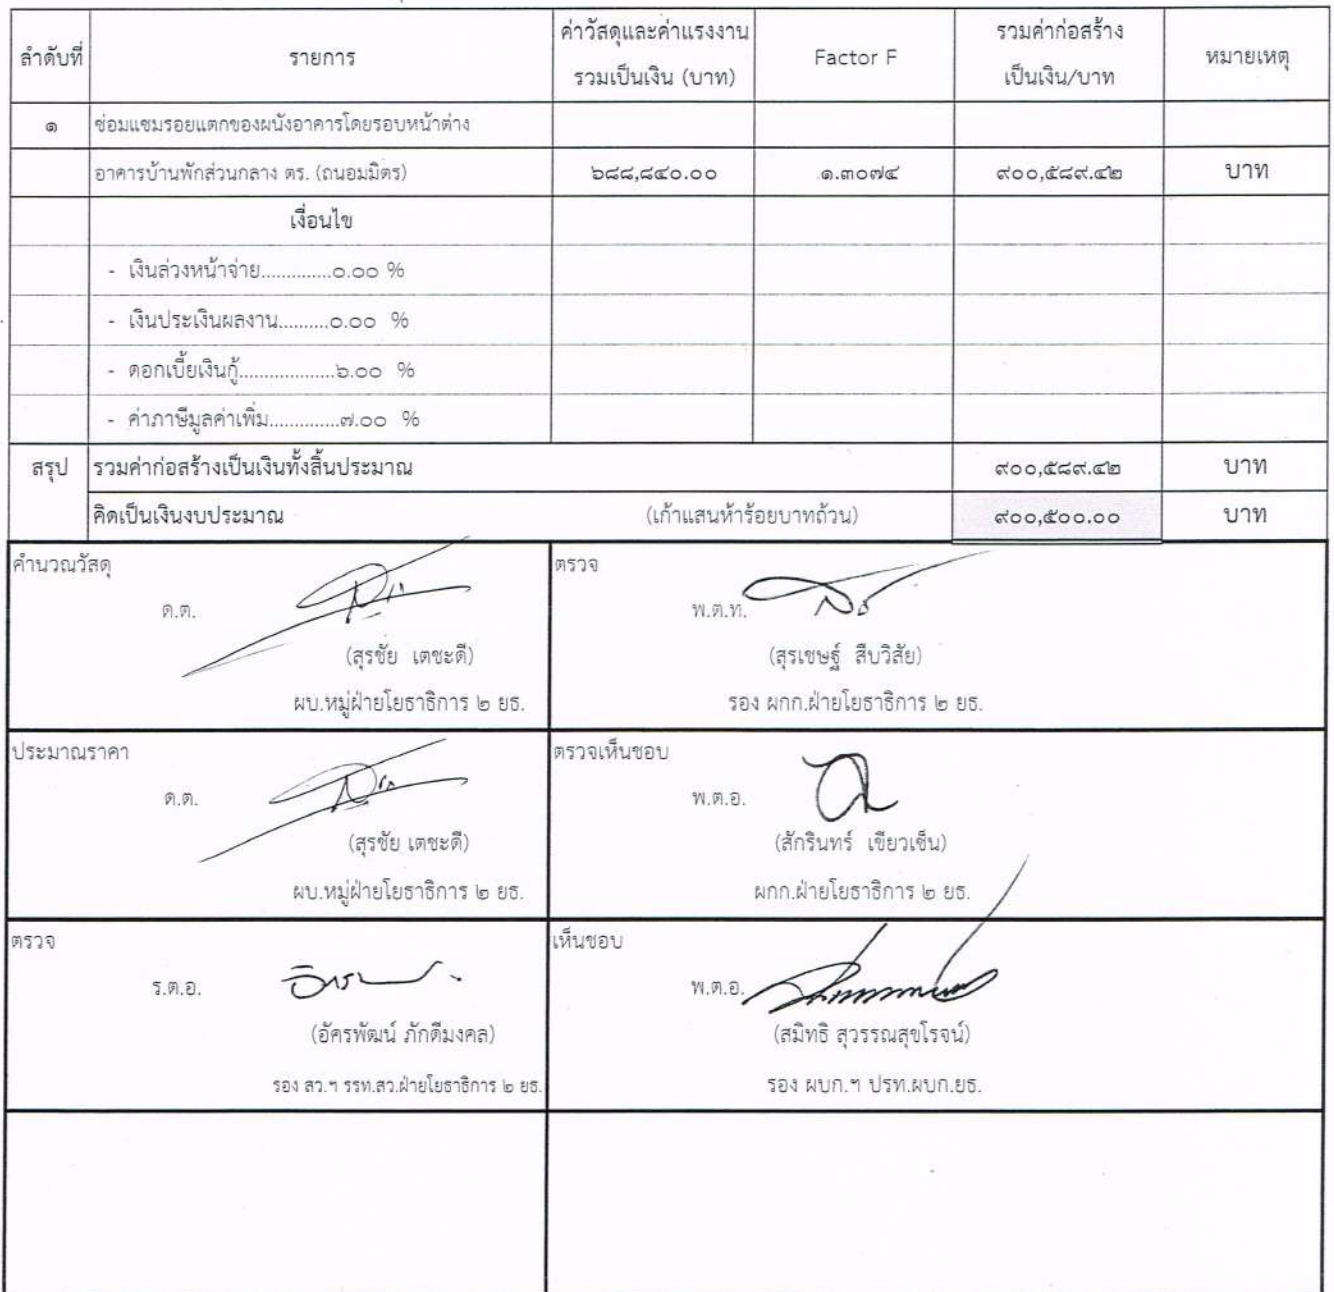 ลำดับที่ รายการ ค่าวัสดุและค่าแรงงาน รวมเป็นเงิน (บาท) Factor F รวมค่าก่อสร้าง เป็นเงิน/บาท หมายเหตุ
๑ ซ่อมแซมรอยแตกของผนังอาคารโดยรอบหน้าต่าง
อาคารบ้านพักส่วนกลาง ตร. (ถนอมมิตร) ๖๘๘,๘๔๐.๐๐ ๑.๓๐๗๔ ๙๐๐,๕๘๙.๔๒ บาท
เงื่อนไข
- เงินล่วงหน้าจ่าย..............๐.๐๐ %
- เงินประเงินผลงาน..........๐.๐๐ %
- ดอกเบี้ยเงินกู้...................๖.๐๐ %
- ค่าภาษีมูลค่าเพิ่ม..............๗.๐๐ %
สรุป รวมค่าก่อสร้างเป็นเงินทั้งสิ้นประมาณ ๙๐๐,๕๘๙.๔๒ บาท
คิดเป็นเงินงบประมาณ (เก้าแสนห้าร้อยบาทถ้วน) ๙๐๐,๕๐๐.๐๐ บาท
คำนวณวัสดุ
ด.ต.
(สุรชัย เตชะดี)
ผบ.หมู่ฝ่ายโยธาธิการ ๒ ยธ.
ตรวจ
พ.ต.ท.
(สุรเชษฐ์ สืบวิสัย)
รอง ผกก.ฝ่ายโยธาธิการ ๒ ยธ.
ประมาณราคา
ด.ต.
(สุรชัย เตชะดี)
ผบ.หมู่ฝ่ายโยธาธิการ ๒ ยธ.
ตรวจเห็นชอบ
พ.ต.อ.
(สักรินทร์ เขียวเซ็น)
ผกก.ฝ่ายโยธาธิการ ๒ ยธ.
ตรวจ
ร.ต.อ.
(อัครพัฒน์ ภักดีมงคล)
รอง สว.ฯ รรท.สว.ฝ่ายโยธาธิการ ๒ ยธ.
เห็นชอบ
พ.ต.อ.
(สมิทธิ สุวรรณสุขโรจน์)
รอง ผบก.ฯ ปรท.ผบก.ยธ.